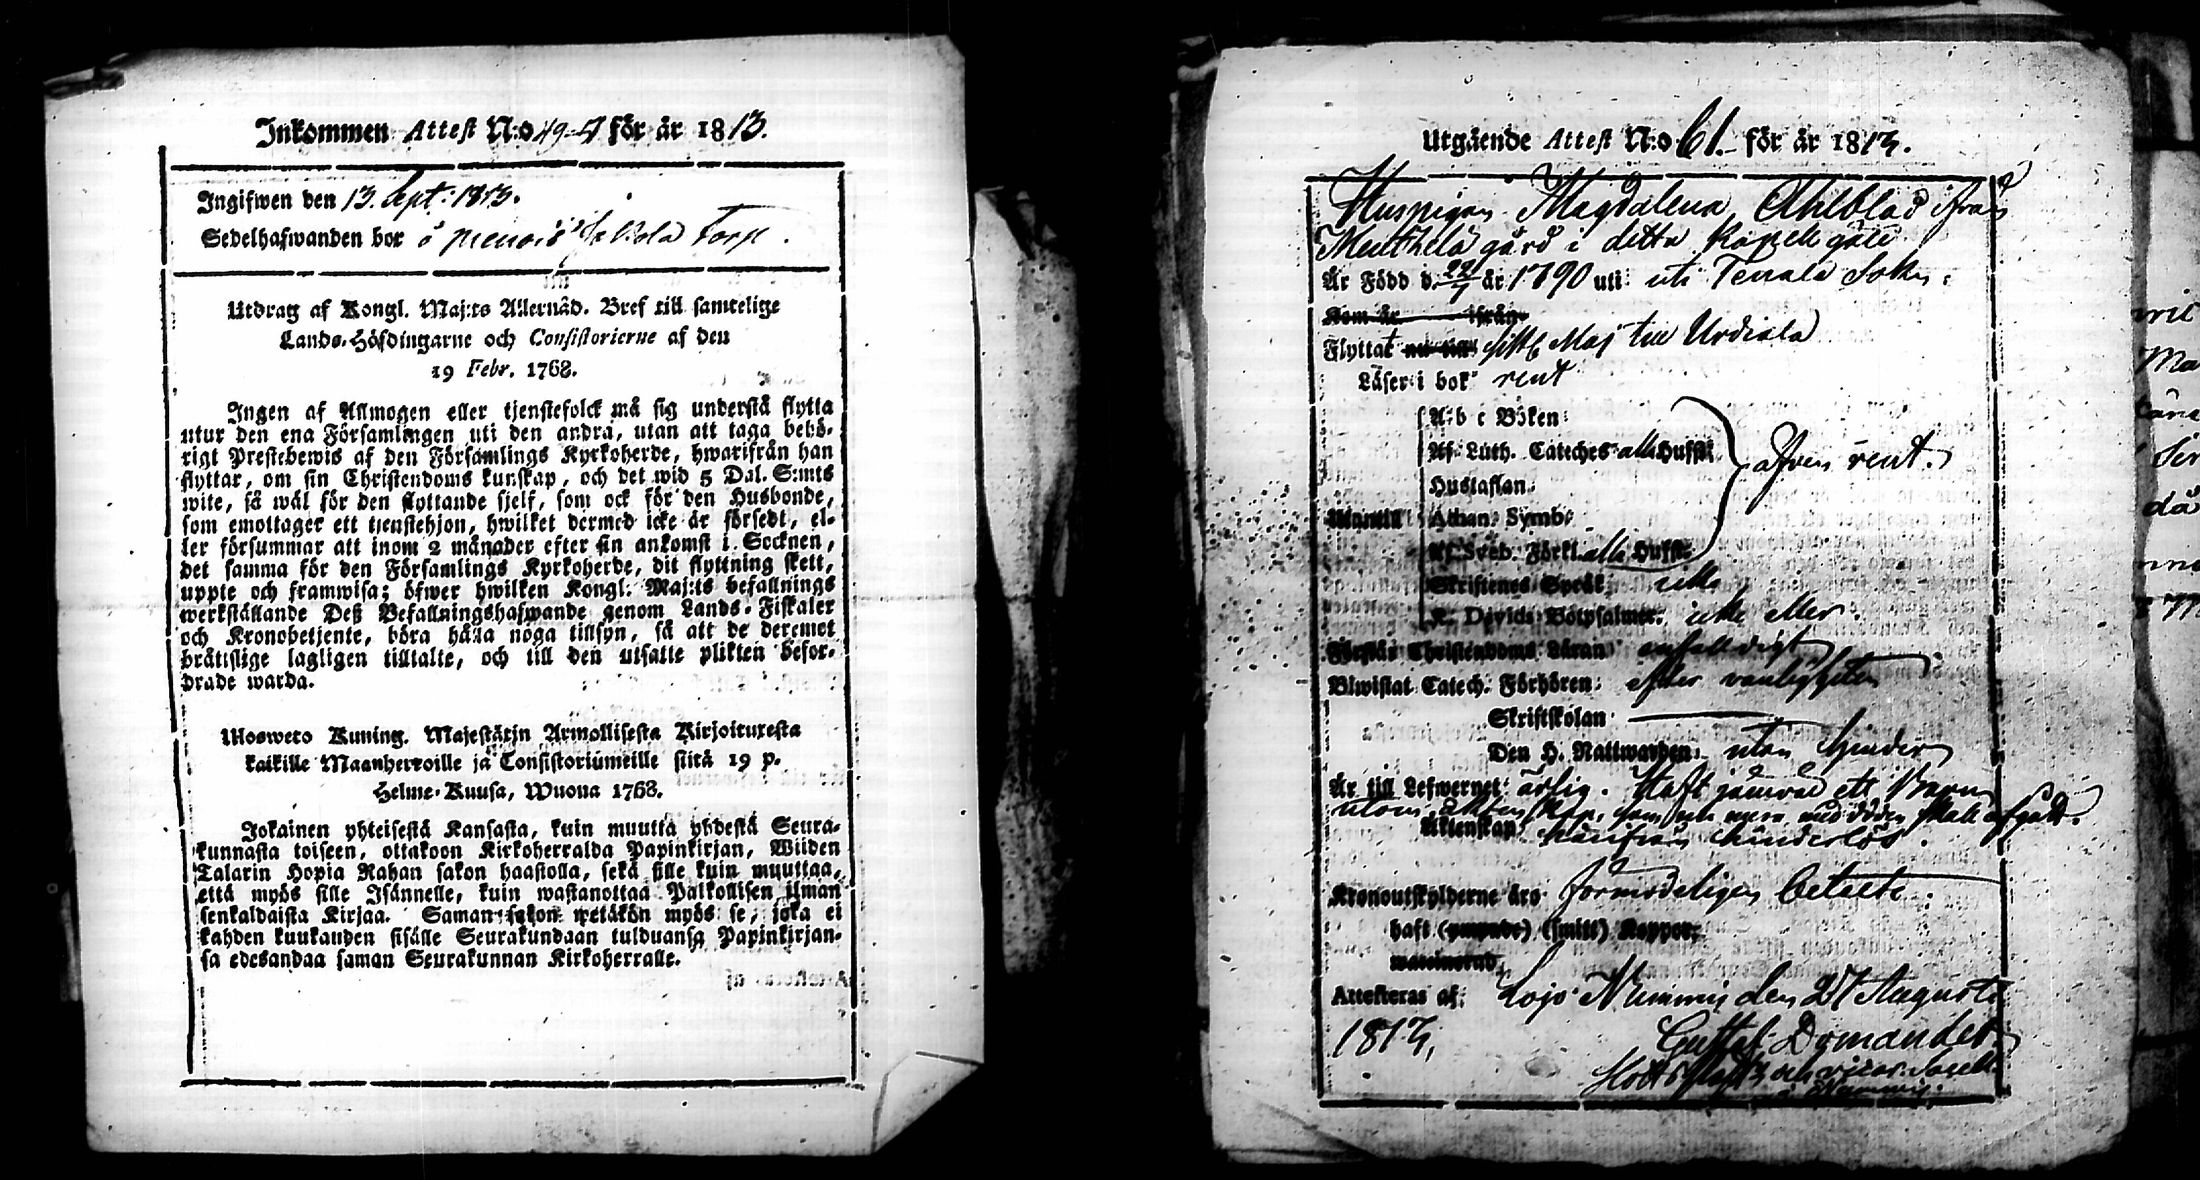 Inkommen Attest N:o 49 för år 1813.
Ingifwen den 13. Sept: 1813.
Sedelhafwanden bor å Torp.
Utdrag af Kongl. Maj:ts Allernåd. Bref till samtelige
Lands-Höfdingarne och Consistorierne af den
19 Febr. 1768.
Ingen af Allmogen eller tjenstefolck må sig understå flytta
utur den ena Församlingen uti den andra, utan att taga behö-
rigt Prestebewis af den Församlings Kyrkoherde, hwarifrån han
flyttar, om sin Christendoms kunskap, och det wid 5 Dal. S:mts
wite, så wäl för den flyttande sjelf, som ock för den Husbonde,
som emottager ett tjenstehjon, hwilket dermed icke är försedt, el-
ler försummar att inom 2 månader efter sin ankomst i Socknen,
det samma för den Församlings Kyrkoherde, dit flyttning skett,
uppte och framwisa; öfwer hwilken Kongl. Maj:ts befallnings
werkställande Deß Befallningshafwande genom Lands-Fiskaler
och Kronobetjente, böra hålla noga tillsyn, så att de deremot
bråttslige lagligen tilltalte, och till den utsatte plikten befor-
drade warda.
Ulosweto Kuning. Majestätin Armollisesta Kirjoituxesta
kaikille Maanherroille ja Consistoriumeille siitä 19 p.
Helme-Kuusa, Wuona 1768.
Jokainen yhteisestä Kansasta, kuin muutta yhdestä Seura-
kunnasta toiseen, ottakoon Kirkoherralda Papinkirjan, Wiiden
Talarin Hopia Rahan sakon haastolla, sekä sille kuin muuttaa,
että myös sille Isännelle, kuin wastanottaa Palkollisen ilman
senkaldaista Kirjaa. Saman sakon wetäkön myös se, joka ei
kahden kuukauden sisälle Seurakundaan tulduansa Papinkirjan-
sa edesandaa saman Seurakunnan Kirkoherralle.
Utgående Attest N:o 61. för år 1813.
Huspigan Magdalena Ahlblad ifrån
Menthela gård i detta Kapell gäll
Är Född d. 22/7 år 1790 uti uti Tenala Sokn.
Kom år ifrån
Flyttat nu till sistl. Maj till Urdiala
Läser i bok rent
A-b-c Boken:
Af Luth. Cateches alla Hufst: äfven rent.
Hustaflan:
Utantill Athan. Symb.
Af Sveb. Förkl. alla Hufst:
Skriftenes Språk icke
K. Davids Botpsalmer. icke eller.
Förstår Christendoms Läran enfalldigt
Biwistat Catech. Förhören: efter vanligheten
Skriftskolan
Den H. Nattwarden: utan hinder
Är till Lefwernet: ärlig. Haft jämväl ett Barn
utom
Äktenskap härifrån hinderlös.
Kronoutskylderne äro förmodeligen betalte.
haft (ympade) (smitt) Koppor,
waccinerad,
Attesteras af: Lojo Nummis den 27 Augusti
1813,
Gustaf Domander.